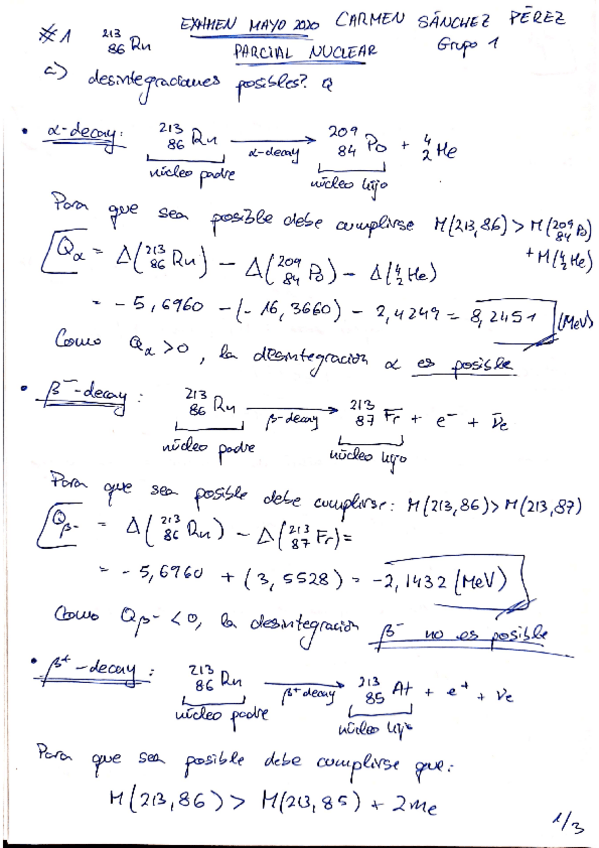 EXAMEN MAYO 2020 CARMEN SÁNCHEZ PÉREZ
PARCIAL NUCLEAR Grupo 1
#1 ²¹³₈₆Rn
a) desintegraciones posibles? Q
• α-decay: ²¹³₈₆Rn ⟶ ²⁰⁹₈₄Po + ⁴₂He
α-decay
núcleo padre núcleo hijo
Para que sea posible debe cumplirse M(213,86) > M(²⁰⁹₈₄Po)
+ M(⁴₂He)
Qα = Δ(²¹³₈₆Rn) − Δ(²⁰⁹₈₄Po) − Δ(⁴₂He)
= −5,6960 − (−16,3660) − 2,4249 = 8,2451 (MeV)
Como Qα > 0, la desintegración α es posible
• β⁻-decay: ²¹³₈₆Rn ⟶ ²¹³₈₇Fr + e⁻ + ν̄e
β⁻-decay
núcleo padre núcleo hijo
Para que sea posible debe cumplirse: M(213,86) > M(213,87)
Qβ⁻ = Δ(²¹³₈₆Rn) − Δ(²¹³₈₇Fr) =
= −5,6960 + (3,5528) = −2,1432 (MeV)
Como Qβ⁻ < 0, la desintegración β⁻ no es posible
• β⁺-decay: ²¹³₈₆Rn ⟶ ²¹³₈₅At + e⁺ + νe
β⁺-decay
núcleo padre núcleo hijo
Para que sea posible debe cumplirse que:
M(213,86) > M(213,85) + 2me
1/3